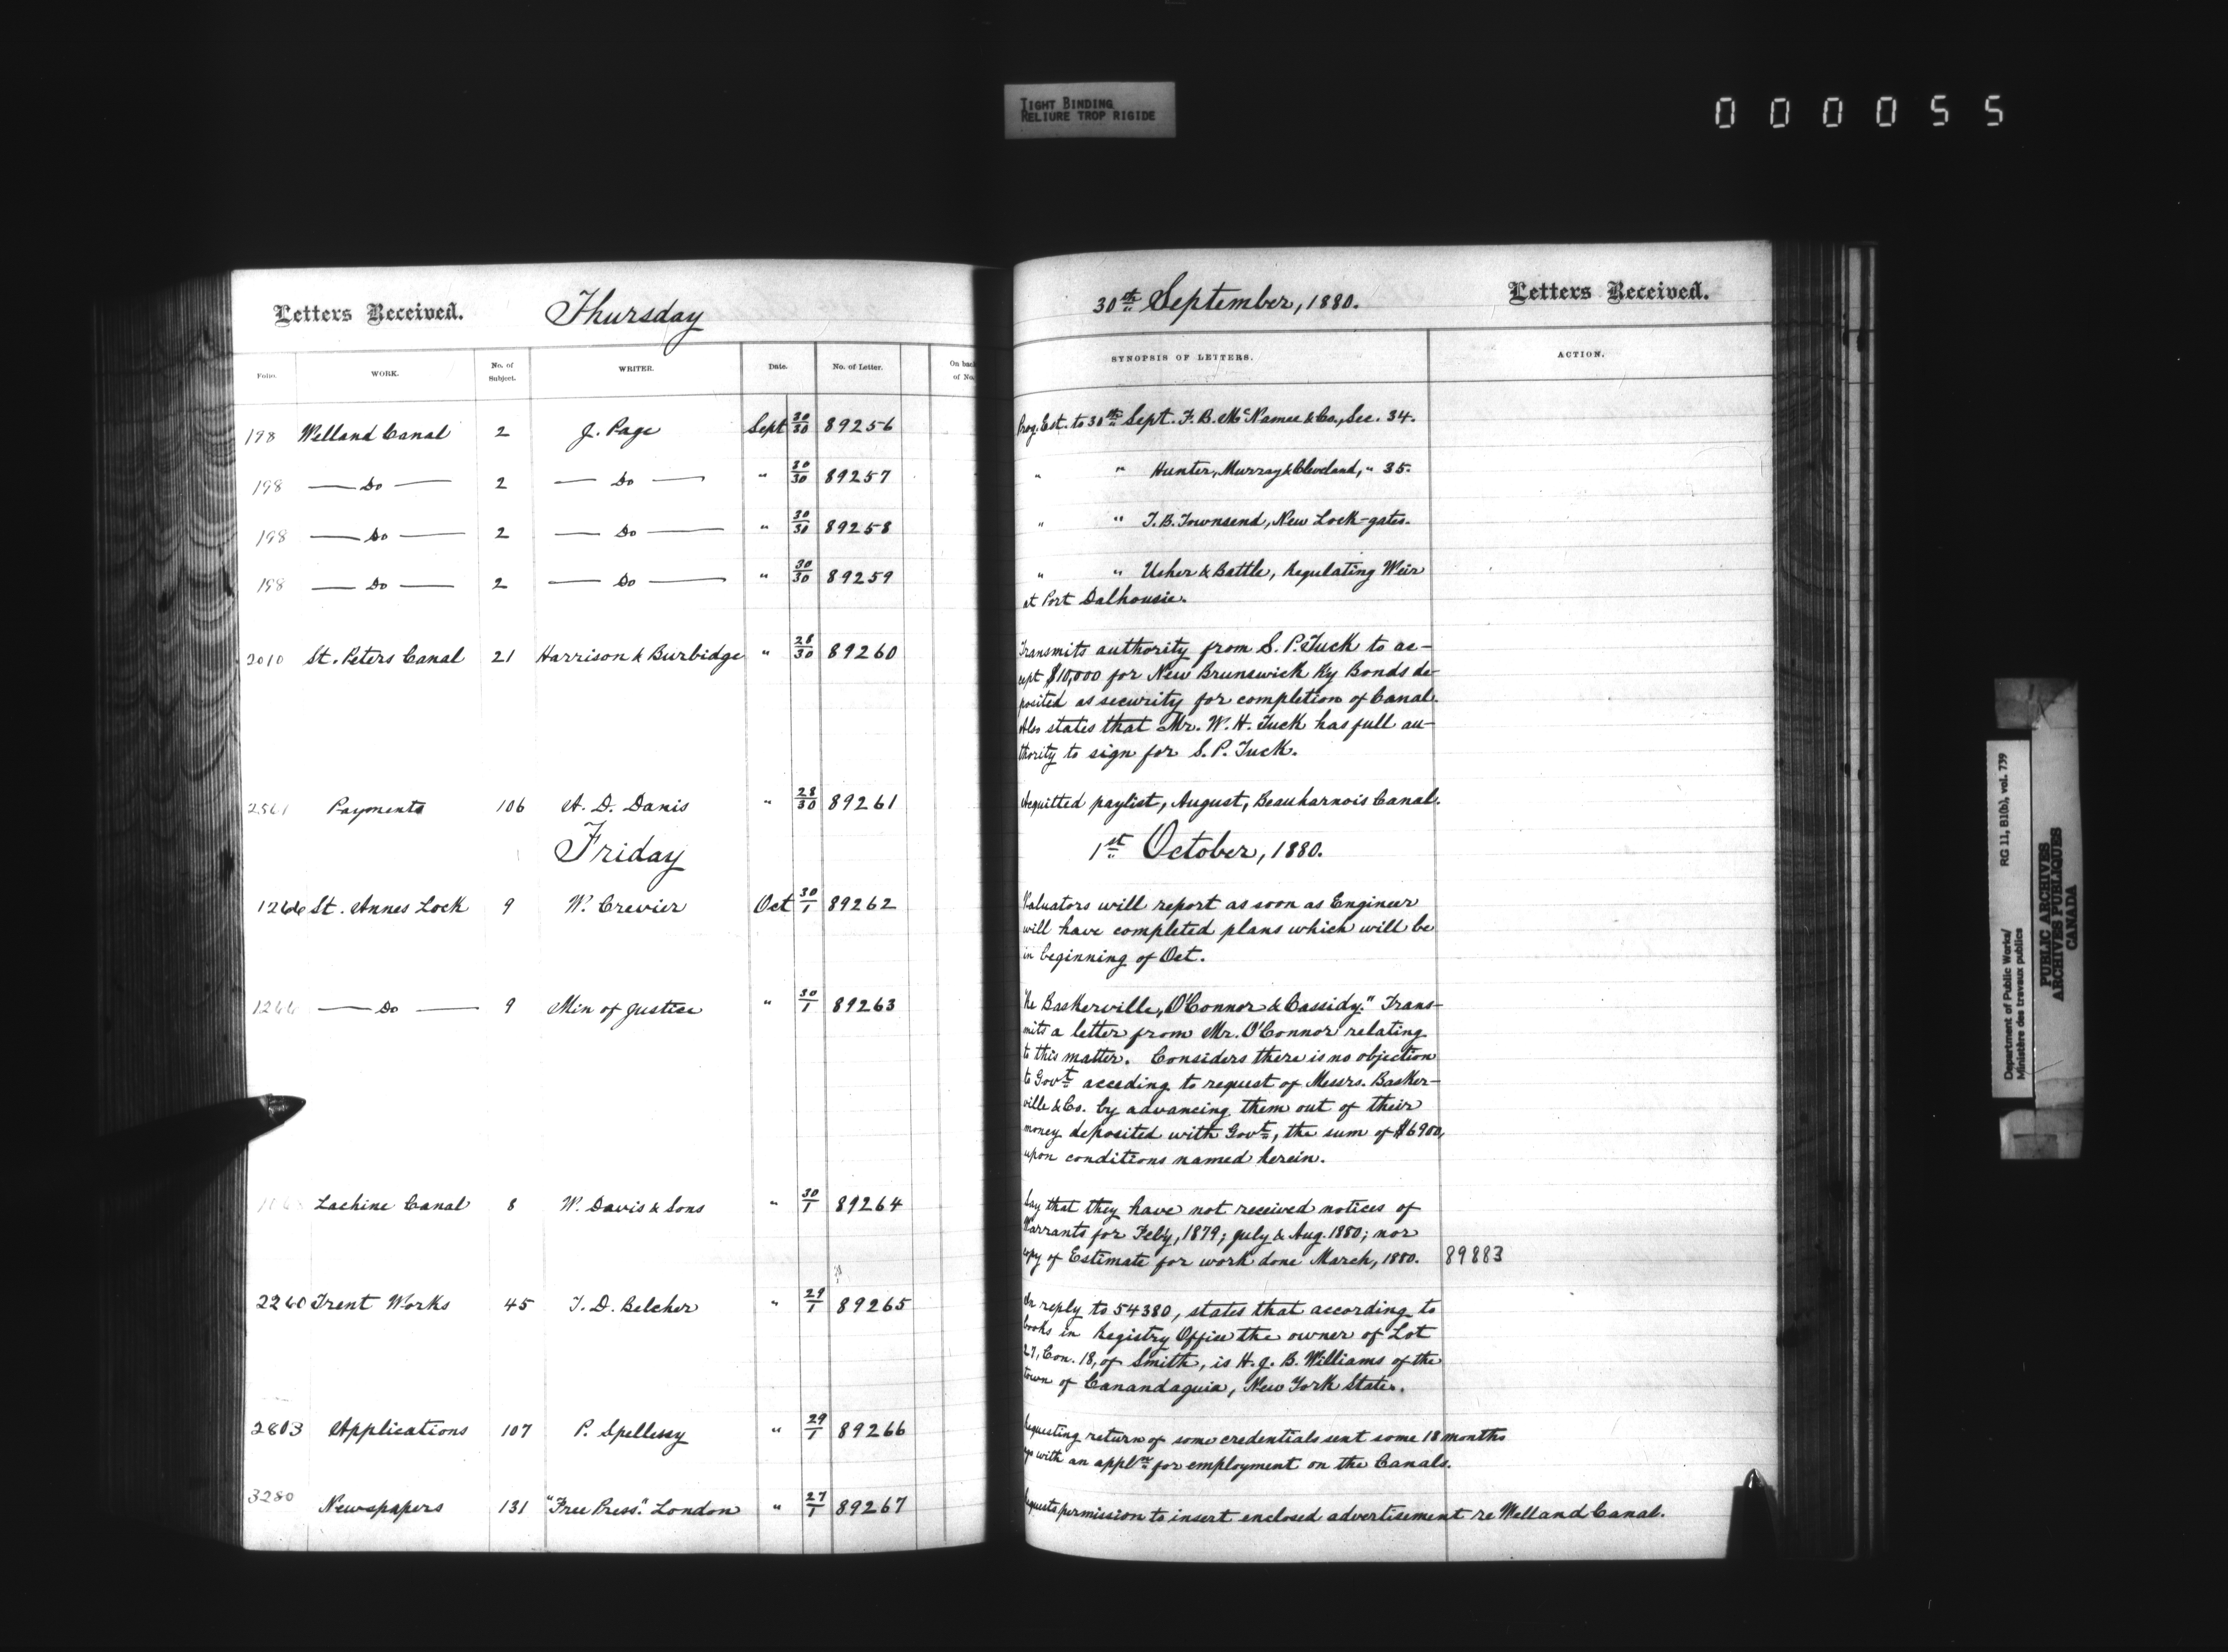 TIGHT BINDING
RELIURE TROP RIGIDE
000055
Letters Received. Thursday
Folio. WORK. No. of Subject. WRITER. Date. No. of Letter. On back of No.
198 Welland Canal 2 J. Page Sept 30/30 89256
198 — Do — 2 — Do — " 30/30 89257
198 — Do — 2 — Do — " 30/30 89258
198 — Do — 2 — Do — " 30/30 89259
2010 St. Peters Canal 21 Harrison & Burbidge " 28/30 89260
2561 Payments 106 A. D. Danis " 28/30 89261
Friday
1266 St. Annes Lock 9 W. Crevier Oct 30/1 89262
1266 — Do — 9 Min of Justice " 30/1 89263
Lachine Canal 8 W. Davis & Sons " 30/1 89264
2260 Trent Works 45 T. D. Belcher " 29/1 89265
2803 Applications 107 P. Spellesy " 29/1 89266
3280 Newspapers 131 "Free Press." London " 27/1 89267
30th September, 1880. Letters Received.
SYNOPSIS OF LETTERS. ACTION.
Prog. Est. to 30th Sept. F. B. McNamee & Co., Sec. 34.
" " Hunter, Murray & Cleveland, " 35.
" " T. B. Townsend, New Lock-gates.
" " Usher & Battle, Regulating Weir
at Port Dalhousie.
Transmits authority from S. P. Tuck to ac-
cept $10,000 for New Brunswick Ry Bonds de-
posited as security for completion of Canal.
Also states that Mr. W. H. Tuck has full au-
thority to sign for S. P. Tuck.
Acquitted paylist, August, Beauharnois Canal.
1st October, 1880.
Valuators will report as soon as Engineer
will have completed plans which will be
in beginning of Oct.
Re Baskerville, O'Connor & Cassidy." Trans-
mits a letter from Mr. O'Connor relating
to this matter. Considers there is no objection
to Govt acceding to request of Messrs. Basker-
ville & Co. by advancing them out of their
money deposited with Govt, the sum of $6900,
upon conditions named herein.
Say that they have not received notices of
Warrants for Feb'y, 1879; July & Aug. 1880; nor
copy of Estimate for work done March, 1880. 89883
In reply to 54380, states that according to
books in Registry Office the owner of Lot
27, Con. 18, of Smith, is H. J. B. Williams of the
town of Canandaguia, New York State.
Requesting return of some credentials sent some 18 months
ago with an appln for employment on the Canals.
Requests permission to insert enclosed advertisement re Welland Canal.
Department of Public Works/ RG 11, B1(b), vol. 739
Ministère des travaux publics
PUBLIC ARCHIVES
ARCHIVES PUBLIQUES
CANADA